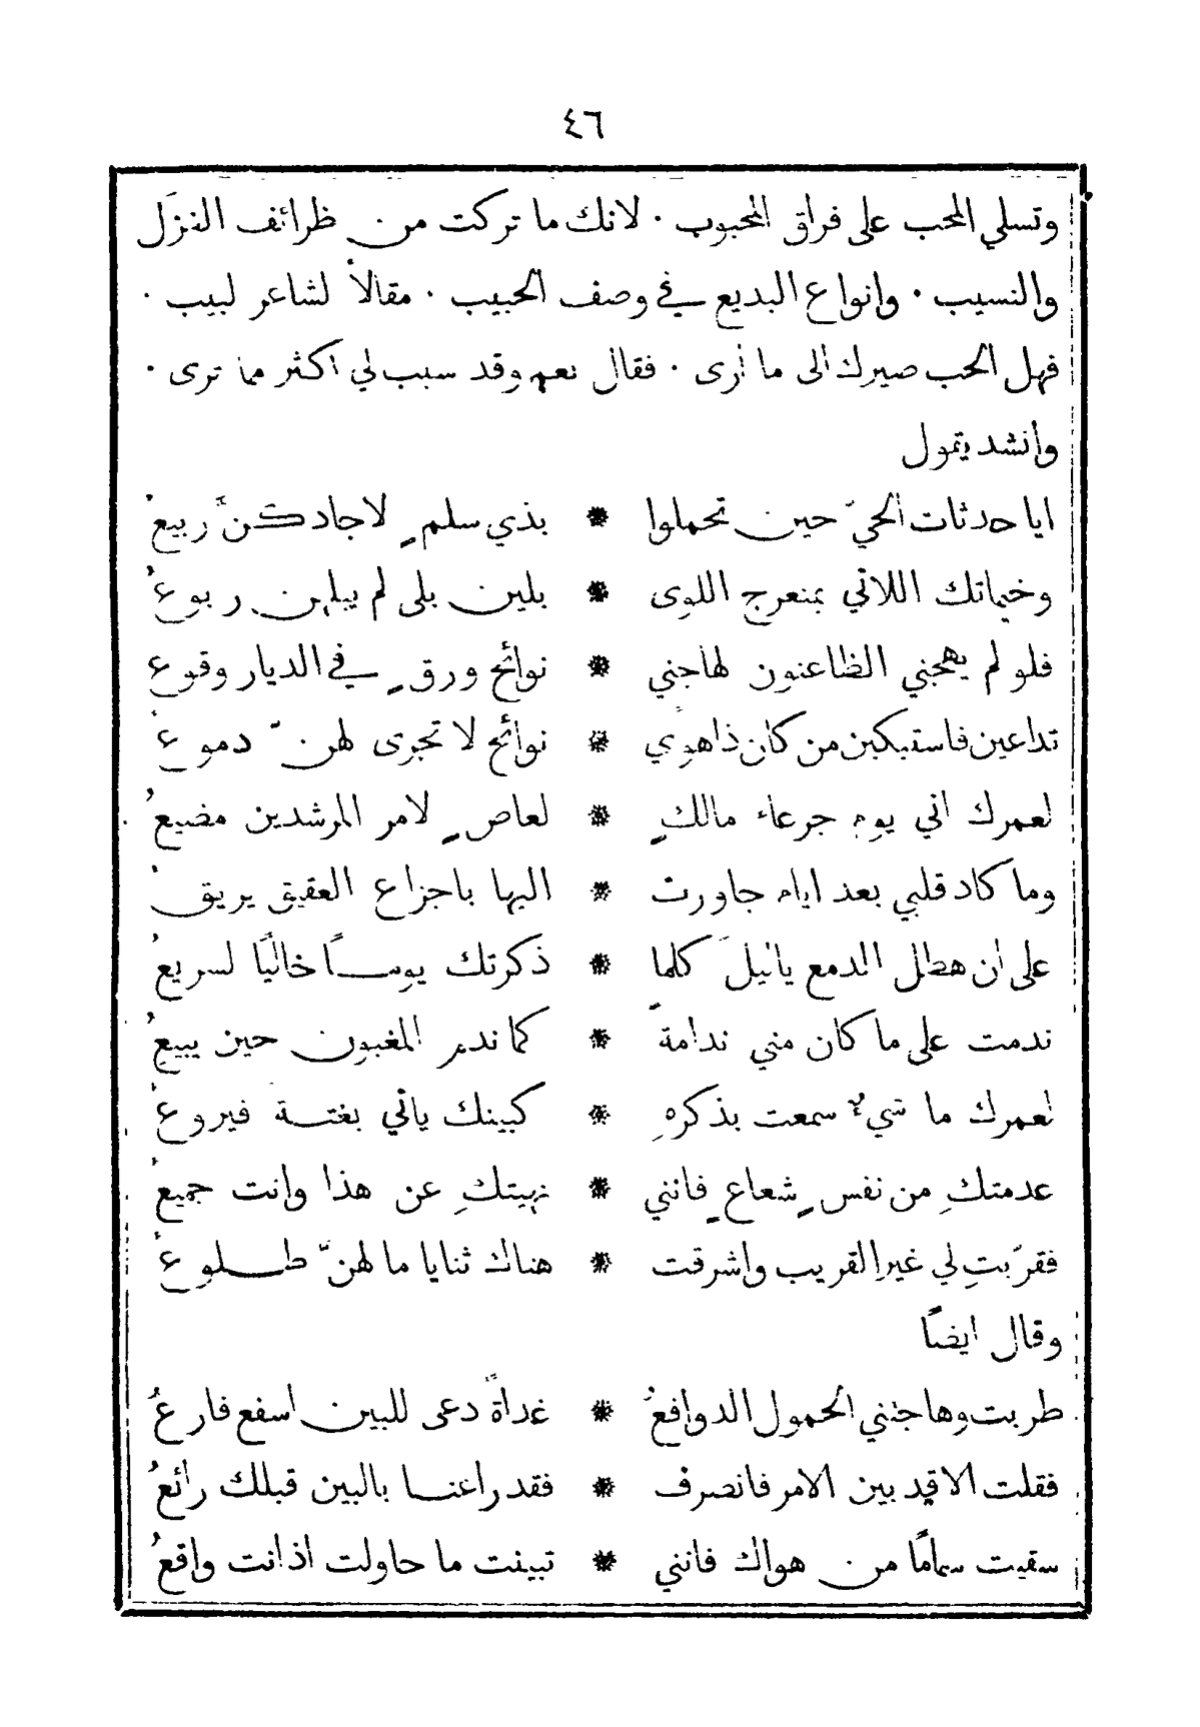 ٤٦
وتسلي المحب على فراق المحبوب · لانك ما تركت من ظرائف الغزَل
والنسيب · وانواع البديع في وصف الحبيب · مقالاً لشاعر لبيب ·
فهل الحب صيرك الى ما أرى · فقال نعم وقد سبب لي اكثر مما ترى ·
وأنشد يقول
ايا حدثات الحيّ حين تحملوا * بذي سلمٍ لا جادكنَّ ربيعُ
وخيماتك اللاتي بمنعرج اللوى * بلين بلى لم يبلهن ربوعُ
فلو لم يهجني الظاعنون لهاجني * نوائح ورقٍ في الديار وقوع
تداعين فاستبكين من كان ذا هوًى * نوائح لا تجرى لهنّ دموعُ
لعمرك اني يوم جرعاء مالكٍ * لعاصٍ لامر المرشدين مضيعُ
وما كاد قلبي بعد ايام جاورت * اليها باجزاع العقيق يريقُ
على ان هطل الدمع ياليلَ كلما * ذكرتك يومًا خاليًا لسريعُ
ندمت على ما كان مني ندامةً * كما ندم المغبون حين يبيعُ
لعمرك ما شيءٌ سمعت بذكرهِ * كبينك ياتي بغتة فيروعُ
عدمتكِ من نفسٍ شعاعٍ فانني * نهيتكِ عن هذا وانت جميعُ
فقرّبتِ لي غير القريب واشرقت * هناك ثنايا ما لهنّ طلوعُ
وقال ايضًا
طربت وهاجتني الحمول الدوافعُ * غداةً دعى للبين اسفع فارعُ
فقلت الا قد بين الامر فانصرف * فقد راعنا بالبين قبلك رائعُ
سقيت سمامًا من هواك فانني * تبينت ما حاولت اذ انت واقعُ